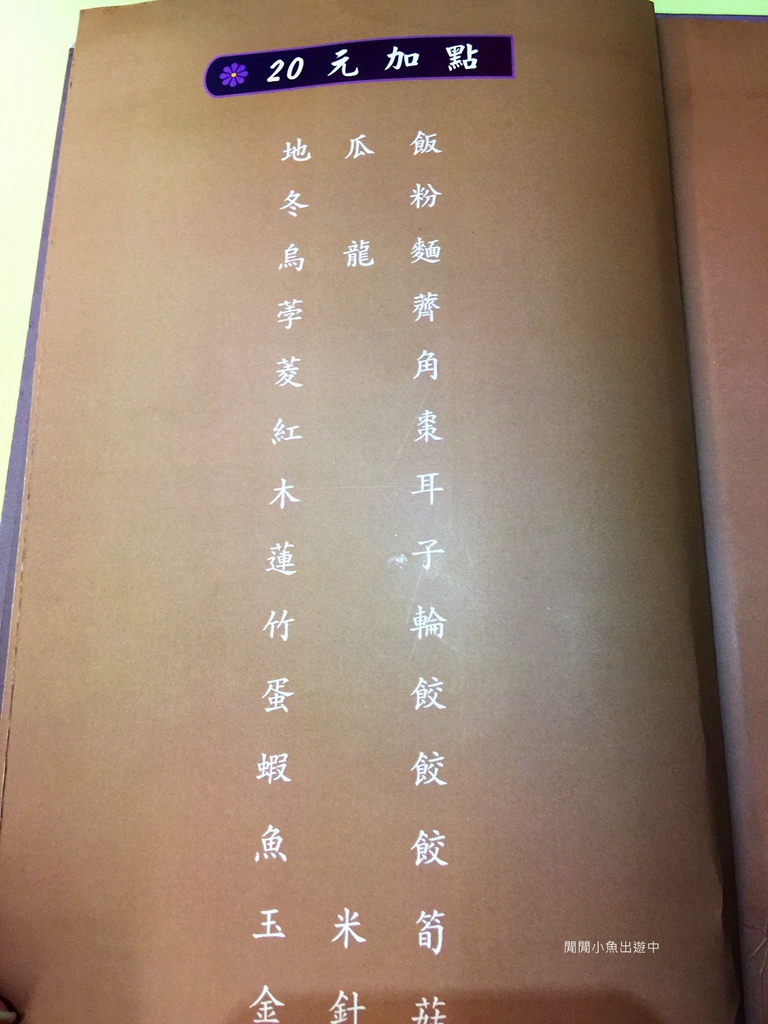 20元加點
地瓜飯
冬粉
烏龍麵
荸薺
菱角
紅棗
木耳
蓮子
竹輪
蛋餃
蝦餃
魚餃
玉米筍
金針菇
閒閒小魚出遊中